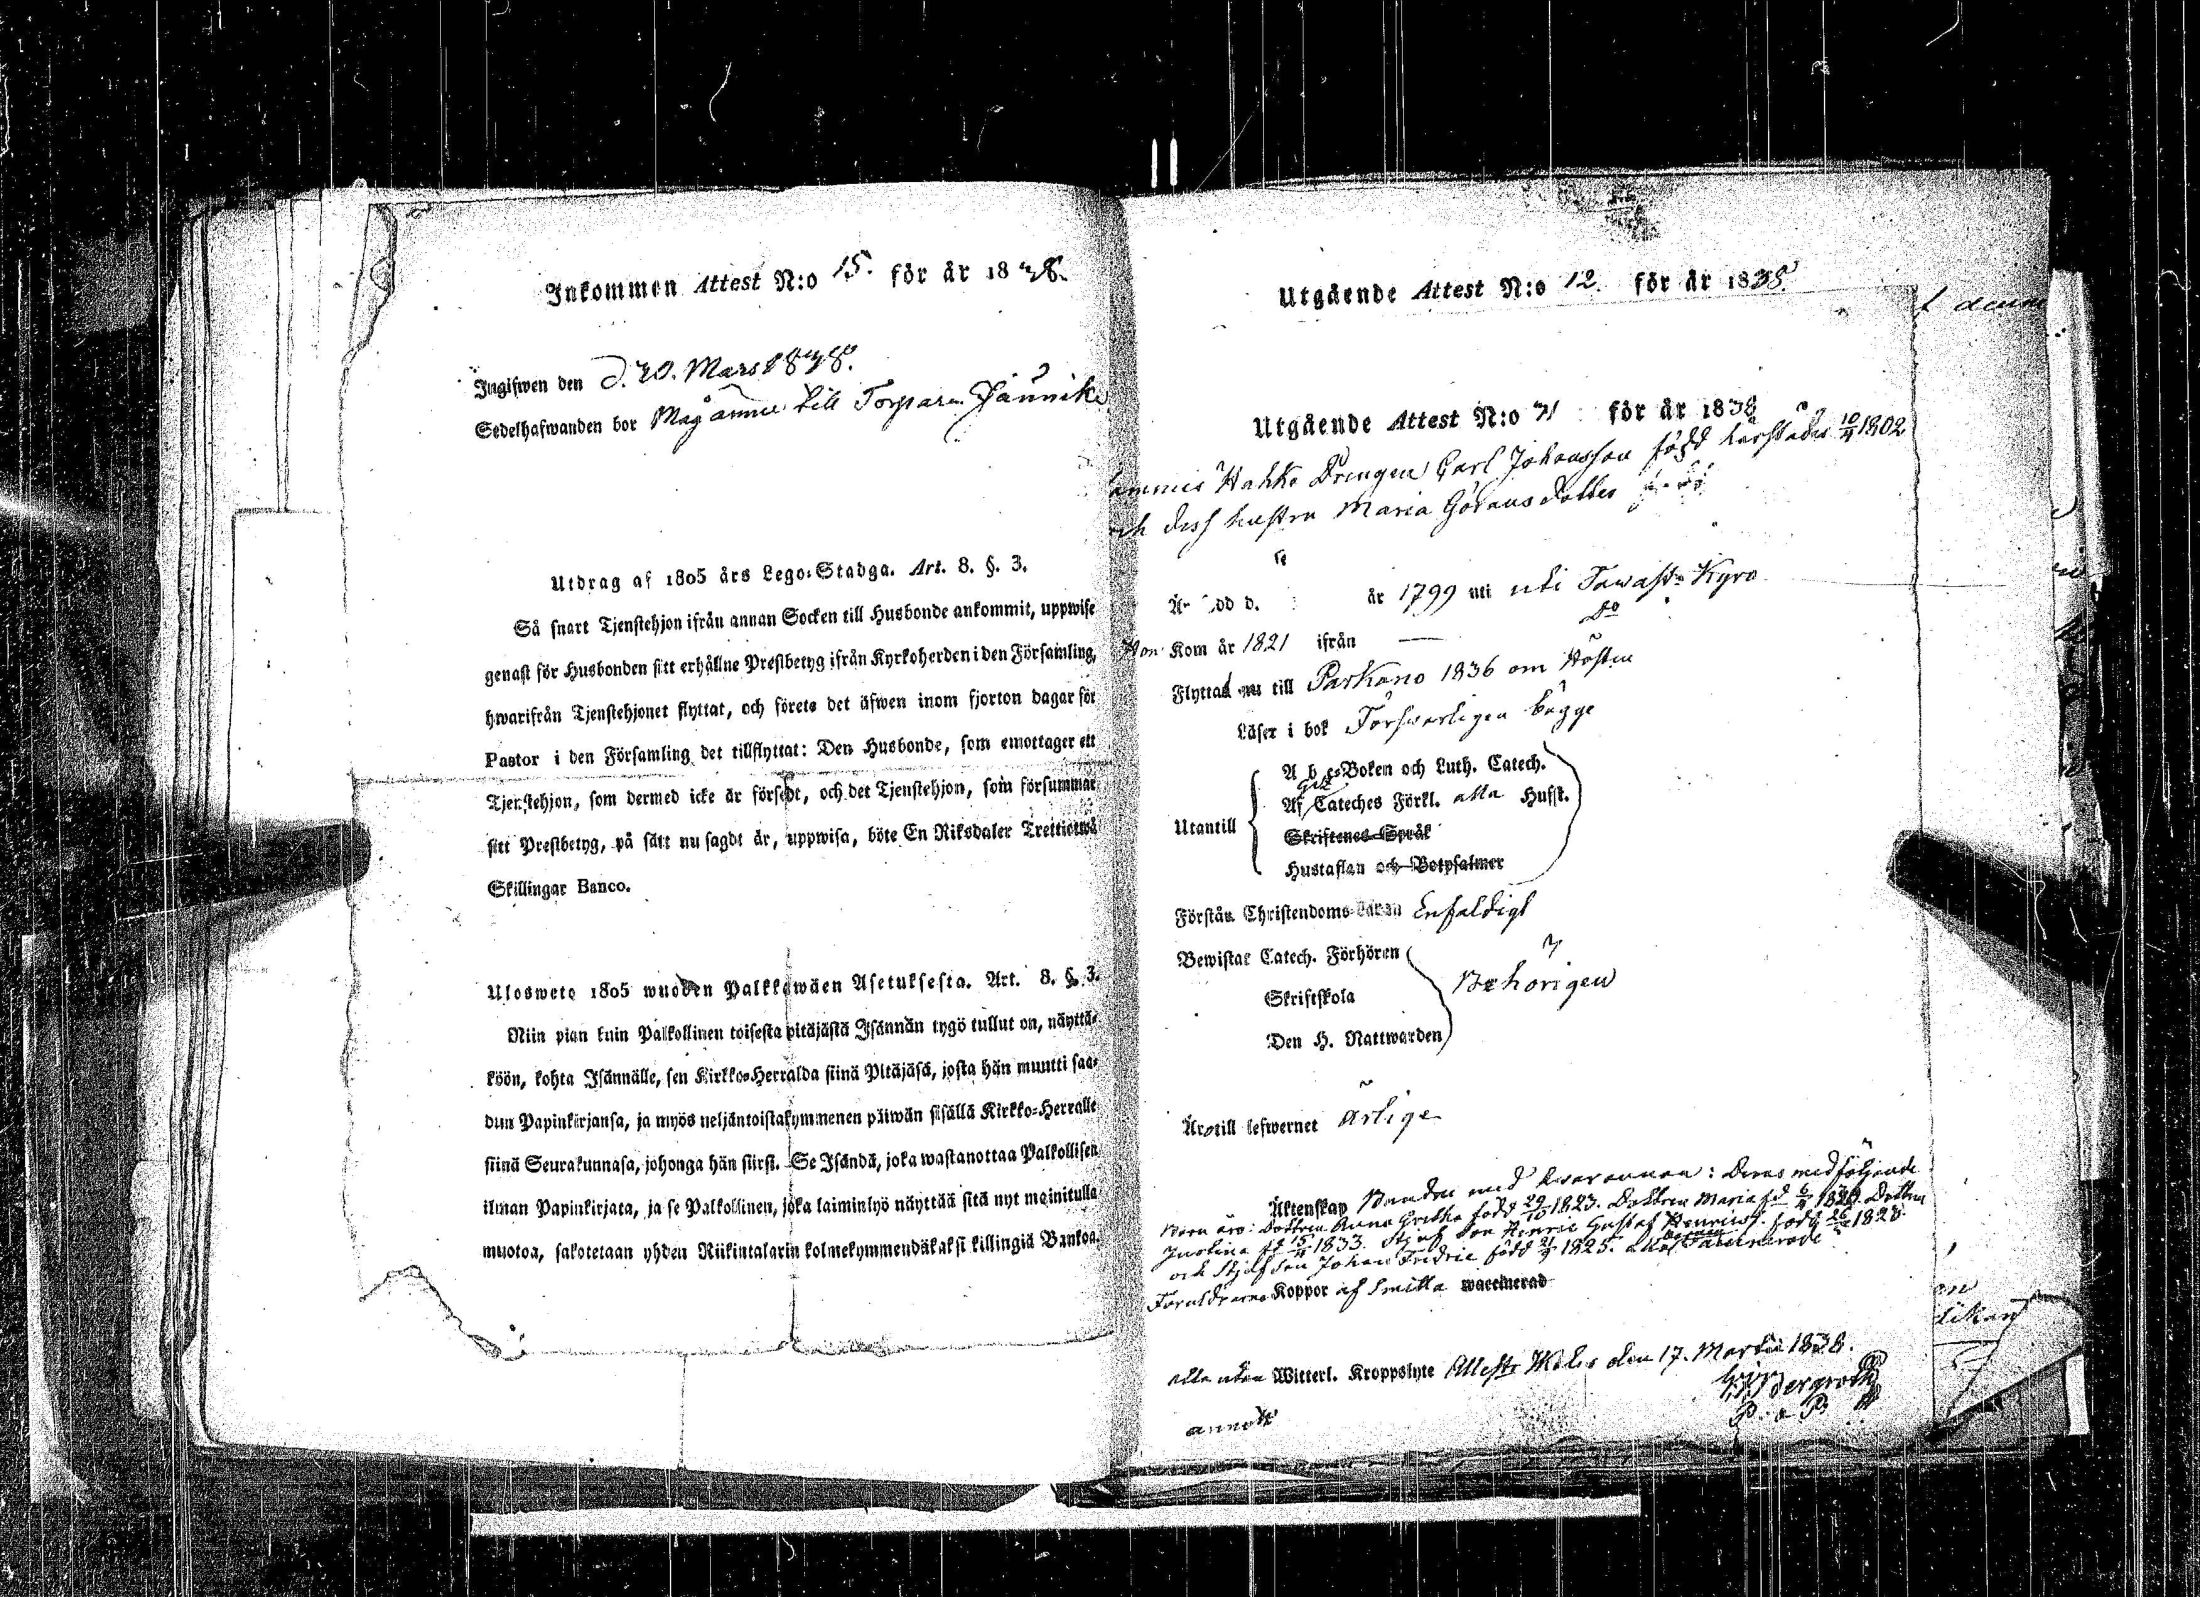 Inkommen Attest N:o 15. för år 1838.
Ingifwen den d. 20. Mars 1838.
Sedelhafwanden bor Måg till Torparen
Utdrag af 1805 års Lego-Stadga. Art. 8. §. 3.
Så snart Tjenstehjon ifrån annan Socken till Husbonde ankommit, uppwise
genast för Husbonden sitt erhållne Prestbetyg ifrån Kyrkoherden i den Församling,
hwarifrån Tjenstehjonet flyttat, och förete det äfwen inom fjorton dagar för
Pastor i den Församling det tillflyttat: Den Husbonde, som emottager ett
Tjenstehjon, som dermed icke är försedt, och det Tjenstehjon, som försummar
sitt Prestbetyg, på sätt nu sagdt är, uppwisa, böte En Riksdaler Trettiotwå
Skillingar Banco.
Ulosweto 1805 wuoden Palkkawäen Asetuksesta. Art. 8. §. 3.
Niin pian kuin Palkollinen toisesta pitäjästä Isännän tygö tullut on, näyttä-
köön, kohta Isännälle, sen Kirkko-Herralda siinä Pitäjäsä, josta hän muutti saa-
dun Papinkirjansa, ja myös neljäntoistakymmenen päiwän sisällä Kirkko-Herralle
siinä Seurakunnasa, johonga hän siirsi. Se Isändä, joka wastanottaa Palkollisen
ilman Papinkirjata, ja se Palkollinen, joka laiminlyö näyttää sitä nyt mainitulla
muotoa, sakotetaan yhden Riikintalarin kolmekymmendäkaksi killingiä Bankoa.
Utgående Attest N:o 12. för år 1838.
Utgående Attest N:o 31 för år 1838
Hahko Drengen Carl Johansson född härstädes 10/4 1802
och dess hustru Maria Göransdotter
Är född d. år 1799 uti uti Tawast-Kyro
Hon Kom år 1821 ifrån — Do
Flyttad nu till Parkano 1836 om Hösten
Läser i bok Förswarligen bägge
Utantill
A b c-Boken och Luth. Catech.
Af Cateches Förkl. alla Hufst.
Skriftenes Språk
Hustaflan och Botpsalmer
Förstån Christendoms-Läran Enfaldigt
Bewistat Catech. Förhören
Skriftskola
Den H. Nattwarden
Behörigen
Äro till lefwernet Ärlige
Äktenskap Bundne med hwarannan: Deras medföljande
Barn äro: Dottren Anna Gretha född 29/10 1823. Dottren Maria fd 6/4 1830. Dottren
Justina fd 15/4 1833. Styf Son Henric Gustaf född 26/ 1828.
och Styfson Johan Fredric född 21/4 1825.
Föräldrarna Koppor af Smitta waccinerad
alla utan Witterl. Kroppslyte den 17. Martii 1838.
Bergroth